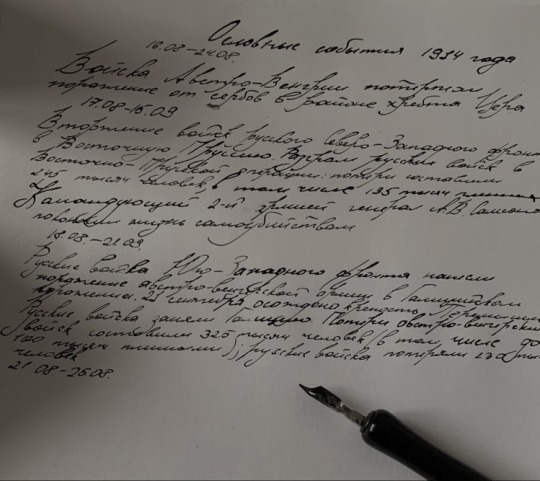 Основные события 1914 года
16.08-24.08.
Войска Австро-Венгрии потерпели
поражение от сербов в районе хребта Цера
17.08-15.09
Вторжение войск руского Северо-Западного фронта
в Восточную Пруссию. Разгром русских войск в
Восточно-Прусской операции: потери составили
245 тысяч человек, в том числе 135 тысяч
Командующий 2-й армией генерал А.В. Самсонов
покончил жизнь самоубийством
18.08-21.09
Руские войска Юго-Западного фронта нанесли
поражение австро-венгерской армии в Галицийском
21 сентября осаждена крепость Перемышль
Руские войска заняли Потери австро-венгерских
войск составили 325 тысяч человек (в том числе до
100 тысяч пленными); руские войска потеряли 230 тыс
человек
21.08-25.08.